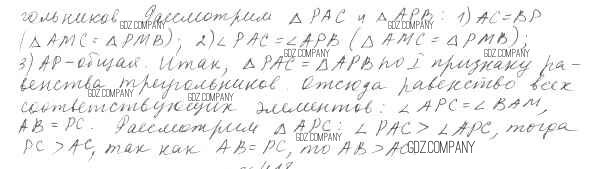 гольников. Рассмотрим △ PAC и △ APB: 1) AC = BP
(△ AMC = △ PMB); 2) ∠ PAC = ∠ APB (△ AMC = △ PMB);
3) AP - общая. Итак, △ PAC = △ APB по I признаку ра-
венства треугольников. Отсюда равенство всех
соответствующих элементов: ∠ APC = ∠ BAM,
AB = PC. Рассмотрим △ APC: ∠ PAC > ∠ APC, тогда
PC > AC, так как AB = PC, то AB > AC.
GDZ.COMPANY
GDZ.COMPANY
GDZ.COMPANY
GDZ.COMPANY
GDZ.COMPANY
GDZ.COMPANY
GDZ.COMPANY
GDZ.COMPANY